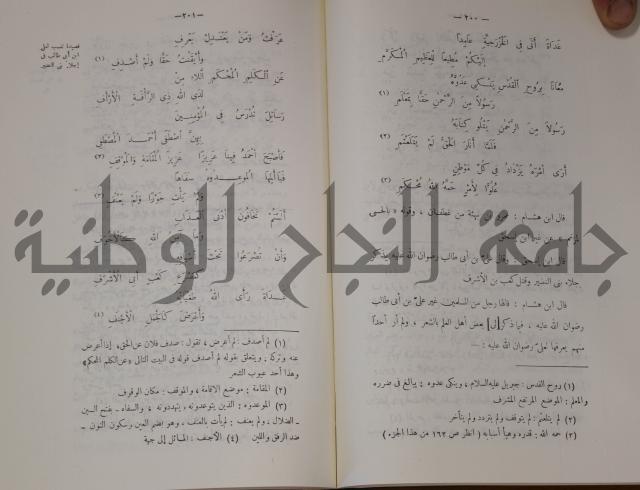 — ٢٠٠ —
غَدَاةَ أَتَى فِي الْخَزْرَجِيَّةِ عَامِدًا
إِلَيْكُمْ مُطِيعًا لِلْعَظِيمِ الْمُكَرَّمِ
مُعَانًا بِرُوحِ الْقُدْسِ يَنْكِي عَدُوَّهُ
رَسُولًا مِنَ الرَّحْمٰنِ حَقًّا بِمَعْلَمِ (١)
رَسُولًا مِنَ الرَّحْمٰنِ يَتْلُو كِتَابَهُ
فَلَمَّا أَنَارَ الْحَقُّ لَمْ يَتَلَعْثَمِ (٢)
أَرَى أَمْرَهُ يَزْدَادُ فِي كُلِّ مَوْطِنٍ
عُلُوًّا لِأَمْرٍ حَمَّهُ اللهُ مُحْكَمِ (٣)
قال ابن هشام : من غطفان ، وقوله « بالحسى
عن غير ابن إسحق
قال ابن إسحق : وقال علي بن أبي طالب رضوان الله عليه يذكر
جلاء بني النضير وقتل كعب بن الأشرف
قال ابن هشام : قالها رجل من المسلمين غير علي بن أبي طالب
رضوان الله عليه ، فيما ذكر [لي] بعض أهل العلم بالشعر ، ولم أر أحدًا
منهم يعرفها لعلي رضوان الله عليه : —
(١) روح القدس : جبريل عليه السلام ، وينكى عدوه : يبالغ فى ضرره
والمعلم : الموضع المرتفع المشرف
(٢) لم يتلعثم : لم يتوقف ولم يتردد ولم يتأخر
(٣) حمه الله : قدره وهيأ أسبابه ( انظر ص ١٦٢ من هذا الجزء )
— ٢٠١ —
قصيدة تنسب لعلى
ابن أبى طالب فى
إجلاء بنى النضير
عَرَفْتُ وَمَنْ يَعْتَدِلْ يَعْرِفِ
وَأَيْقَنْتُ حَقًّا وَلَمْ أَصْدِفِ (١)
عَنِ الْكَلِمِ الْمُحْكَمِ اللَّاءِ مِنْ
لَدَى اللهِ ذِي الرَّأْفَةِ الْأَرْأَفِ
رَسَائِلُ تُدْرَسُ فِي الْمُؤْمِنِينَ
بِهِنَّ اصْطَفَى أَحْمَدَ الْمُصْطَفِي
فَأَصْبَحَ أَحْمَدُ فِينَا عَزِيزًا عَزِيزَ الْمَقَامَةِ وَالْمَوْقِفِ (٢)
فَيَا أَيُّهَا الْمُوعِدُوهُ سَفَاهًا
وَلَمْ يَأْتِ جَوْرًا وَلَمْ يَعْنُفِ (٣)
أَلَسْتُمْ تَخَافُونَ أَدْنَى الْعَذَابِ
وَمَا اللهِ كَالْأَخْوَفِ
وَأَنْ تُصْرَعُوا تَحْتَ
كَمَصْرَعِ كَعْبٍ أَبِي الْأَشْرَفِ
غَدَاةَ رَأَى اللهُ طُغْيَانَهُ
وَأَعْرَضَ كَالْجَمَلِ الْأَجْنَفِ (٤)
(١) لم أصدف : لم أعرض ، تقول : صدف فلان عن الحق ، إذا أعرض
عنه وتركه ، ويتعلق بقوله لم أصدف قوله فى البيت التالى « عن الكلم المحكم »
وهذا أحد عيوب الشعر
(٢) المقامة : موضع الاقامة ، والموقف : مكان الوقوف
(٣) الموعدوه : الذين يتوعدونه ويتهددونه ، والسفاه - بفتح السين
- الضلال ، ولم يعنف : لم يأت بالعنف ، وهو بضم العين وسكون النون -
ضد الرفق واللين (٤) الأجنف : المائل إلى جهة
جامعة النجاح الوطنية